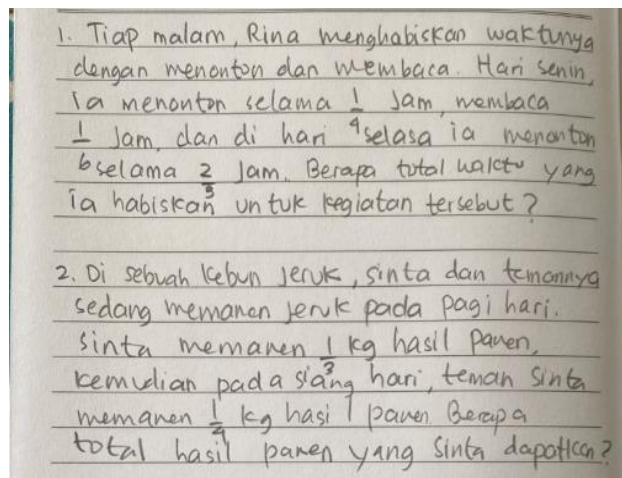 1. Tiap malam, Rina menghabiskan waktunya
dengan menonton dan membaca. Hari senin,
ia menonton selama 1/4 Jam, membaca
1/6 Jam, dan di hari selasa ia menonton
selama 2/3 Jam. Berapa total waktu yang
ia habiskan untuk kegiatan tersebut?
2. Di sebuah kebun jeruk, sinta dan temannya
sedang memanen jeruk pada pagi hari.
sinta memanen 1/3 kg hasil panen,
kemudian pada siang hari, teman sinta
memanen 1/4 kg hasil panen. Berapa
total hasil panen yang sinta dapatkan?